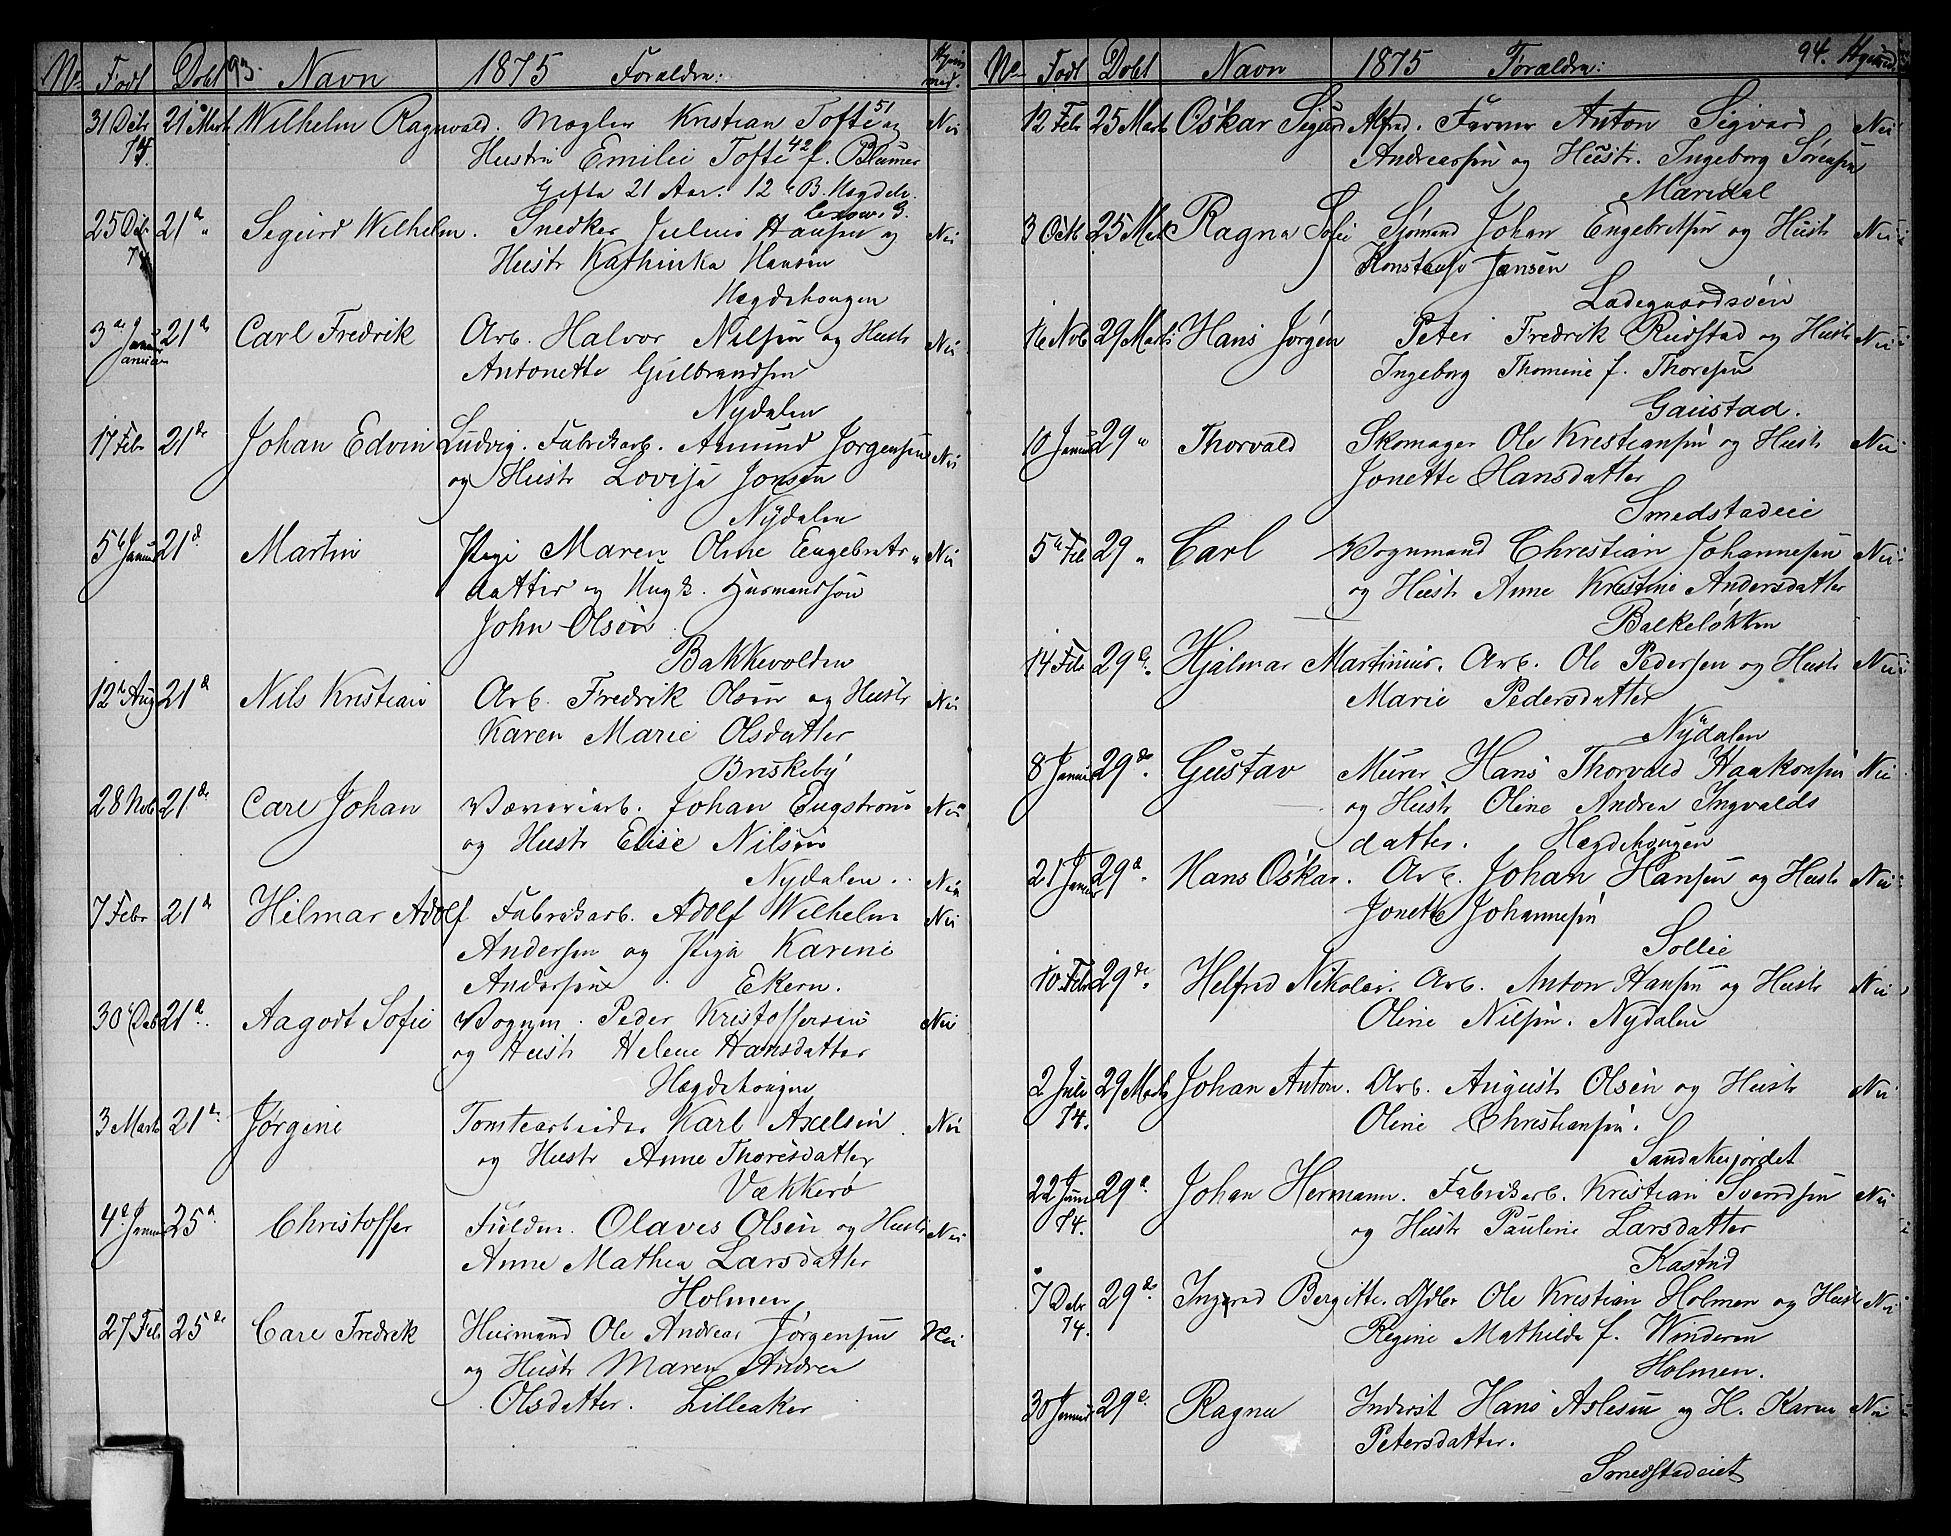 No Født Døbt 93. Navn 1875 Forældre: Hjem med.
31 Debr 21 Marts Wilhelm Ragnvald. Mægler Kristian Tofte 51 og Nei
74. Hustru Emilie Tofte 42 f. Blumer
Gifte 21 Aar. 12 B. Hægdeh.
25 Debr 21 d. Sigurd Wilhelm. Snedker Julius Hansen og Nei
Hustr Kathinka Hansen
Hægdehougen
3 d Januar 21 d Carl Fredrik Arb. Halvor Nilsen og Hustr Nei
Antonette Gulbrandsen
Nydalen
17 Febr 21 d. Johan Edvin Ludvig. Fabrikarb. Amund Jørgensen Nei
og Hustr Lovisa Jonsen
Nydalen
5 Januar 21 d. Martin Pige Maren Oline Engebrets- Nei
datter og Ungk. Husmandssøn
John Olsen
Bakkevolden
12 Aug 21 d Nils Kristian Arb. Fredrik Olsen og Hustr Nei
Karen Marie Olsdatter
Briskeby
28 Nob 21 d. Carl Johan Væveriarb. Johan Engstrøm Nei
og Hustr Elise Nilsen
Nydalen. Nei
7 Febr 21 d Hilmar Adolf Fabrikarb. Adolf Wilhelm Nei
Andersen og Pige Karine
Andersen Ekern.
30 Deb 21 d. Aagodt Sofie Vognm. Peder Kristoffersen Nei
og Hustr Helene Hansdatter
Hægdehougen
3 Marts 21 d. Jørgine Tomtearbeider Karl Axelsen Nei
og Hustr Anne Thoresdatter
Vækkerø
4 d Januar 25 d. Christoffer Fulden. Olaves Olsen og Hustr Nei
Anne Mathea Larsdatter
Holmen
27 Feb 25 d. Carl Fredrik Husmand Ole Andreas Jørgensen Nei
og Hustr Maren Andrea
Olsdatter. Lilleaker
No Født Døbt Navn 1875 Forældre: 94.
12 Febr 25 Marts Oskar Sigurd Alfred. Farver Anton Sigvard Nei
Andreassen og Hustr. Ingeborg Sørensen
Maridal
3 Octb 25 Marts Ragna Sofie Sømand Johan Engebretsen og Hustr Nei
Konstanse Jansen
Ladegaardsøen
16 Nvb 29 Marts Hans Jørgen Peter Fredrik Rudstad og Hustr Nei
Ingeborg Thomine f. Thoresen
Gaustad.
10 Januar 29 " Thorvald Skomager Ole Kristiansen og Hustr Nei
Jonette Hansdatter
Smedstadeie
5 Feb 29 " Carl Vognmand Christian Johannesen Nei
og Hustr Anne Kristine Andersdatter
Balkeløkken
14 Febr 29 d. Hjalmar Martinius. Arb. Ole Pedersen og Hustr Nei
Marie Pedersdatter
Nydalen
8 Januar 29 d. Gustav Murer Hans Thorvald Haakonsen Nei
og Hustr Oline Andrea Ingvalds
datter. Hægdehougen
21 Januar 29 d. Hans Oskar. Arb. Johan Hansen og Hustr Nei
Jonette Johannesen
Sollie
10 Febr 29 d. Helfred Nikolai. Arb. Anton Hansen og Hustr Nei
Oline Nilsen. Nydalen
2 Juli 29 Marts Johan Anton. Arb. August Olsen og Hustr Nei
74. Oline Christiansen.
Sandakerjordet
22 Juni 29 d. Johan Hermann. Fabrikarb. Kristian Svendsen Nei
74. og Hustr Pauline Larsdatter
Kastud
7 Debr 29 d. Ingerud Bergitte. Gdbr Ole Kristian Holmen og Hustr Nei
74. Regine Mathilde f. Winderen
Holmen.
30 Januar 29 d. Ragna Inderst Hans Aslesen og H. Karen Nei
Petersdatter.
Smedstadeiet